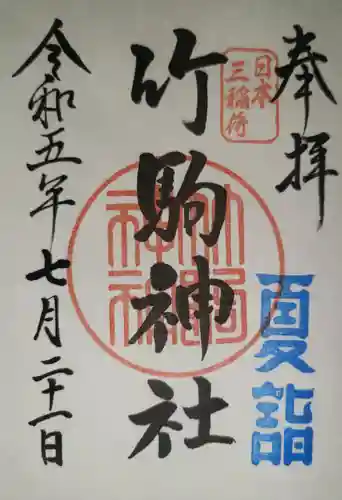 奉拝
夏詣
日本
三稲荷
竹駒神社
竹駒
神社
令和五年七月二十一日